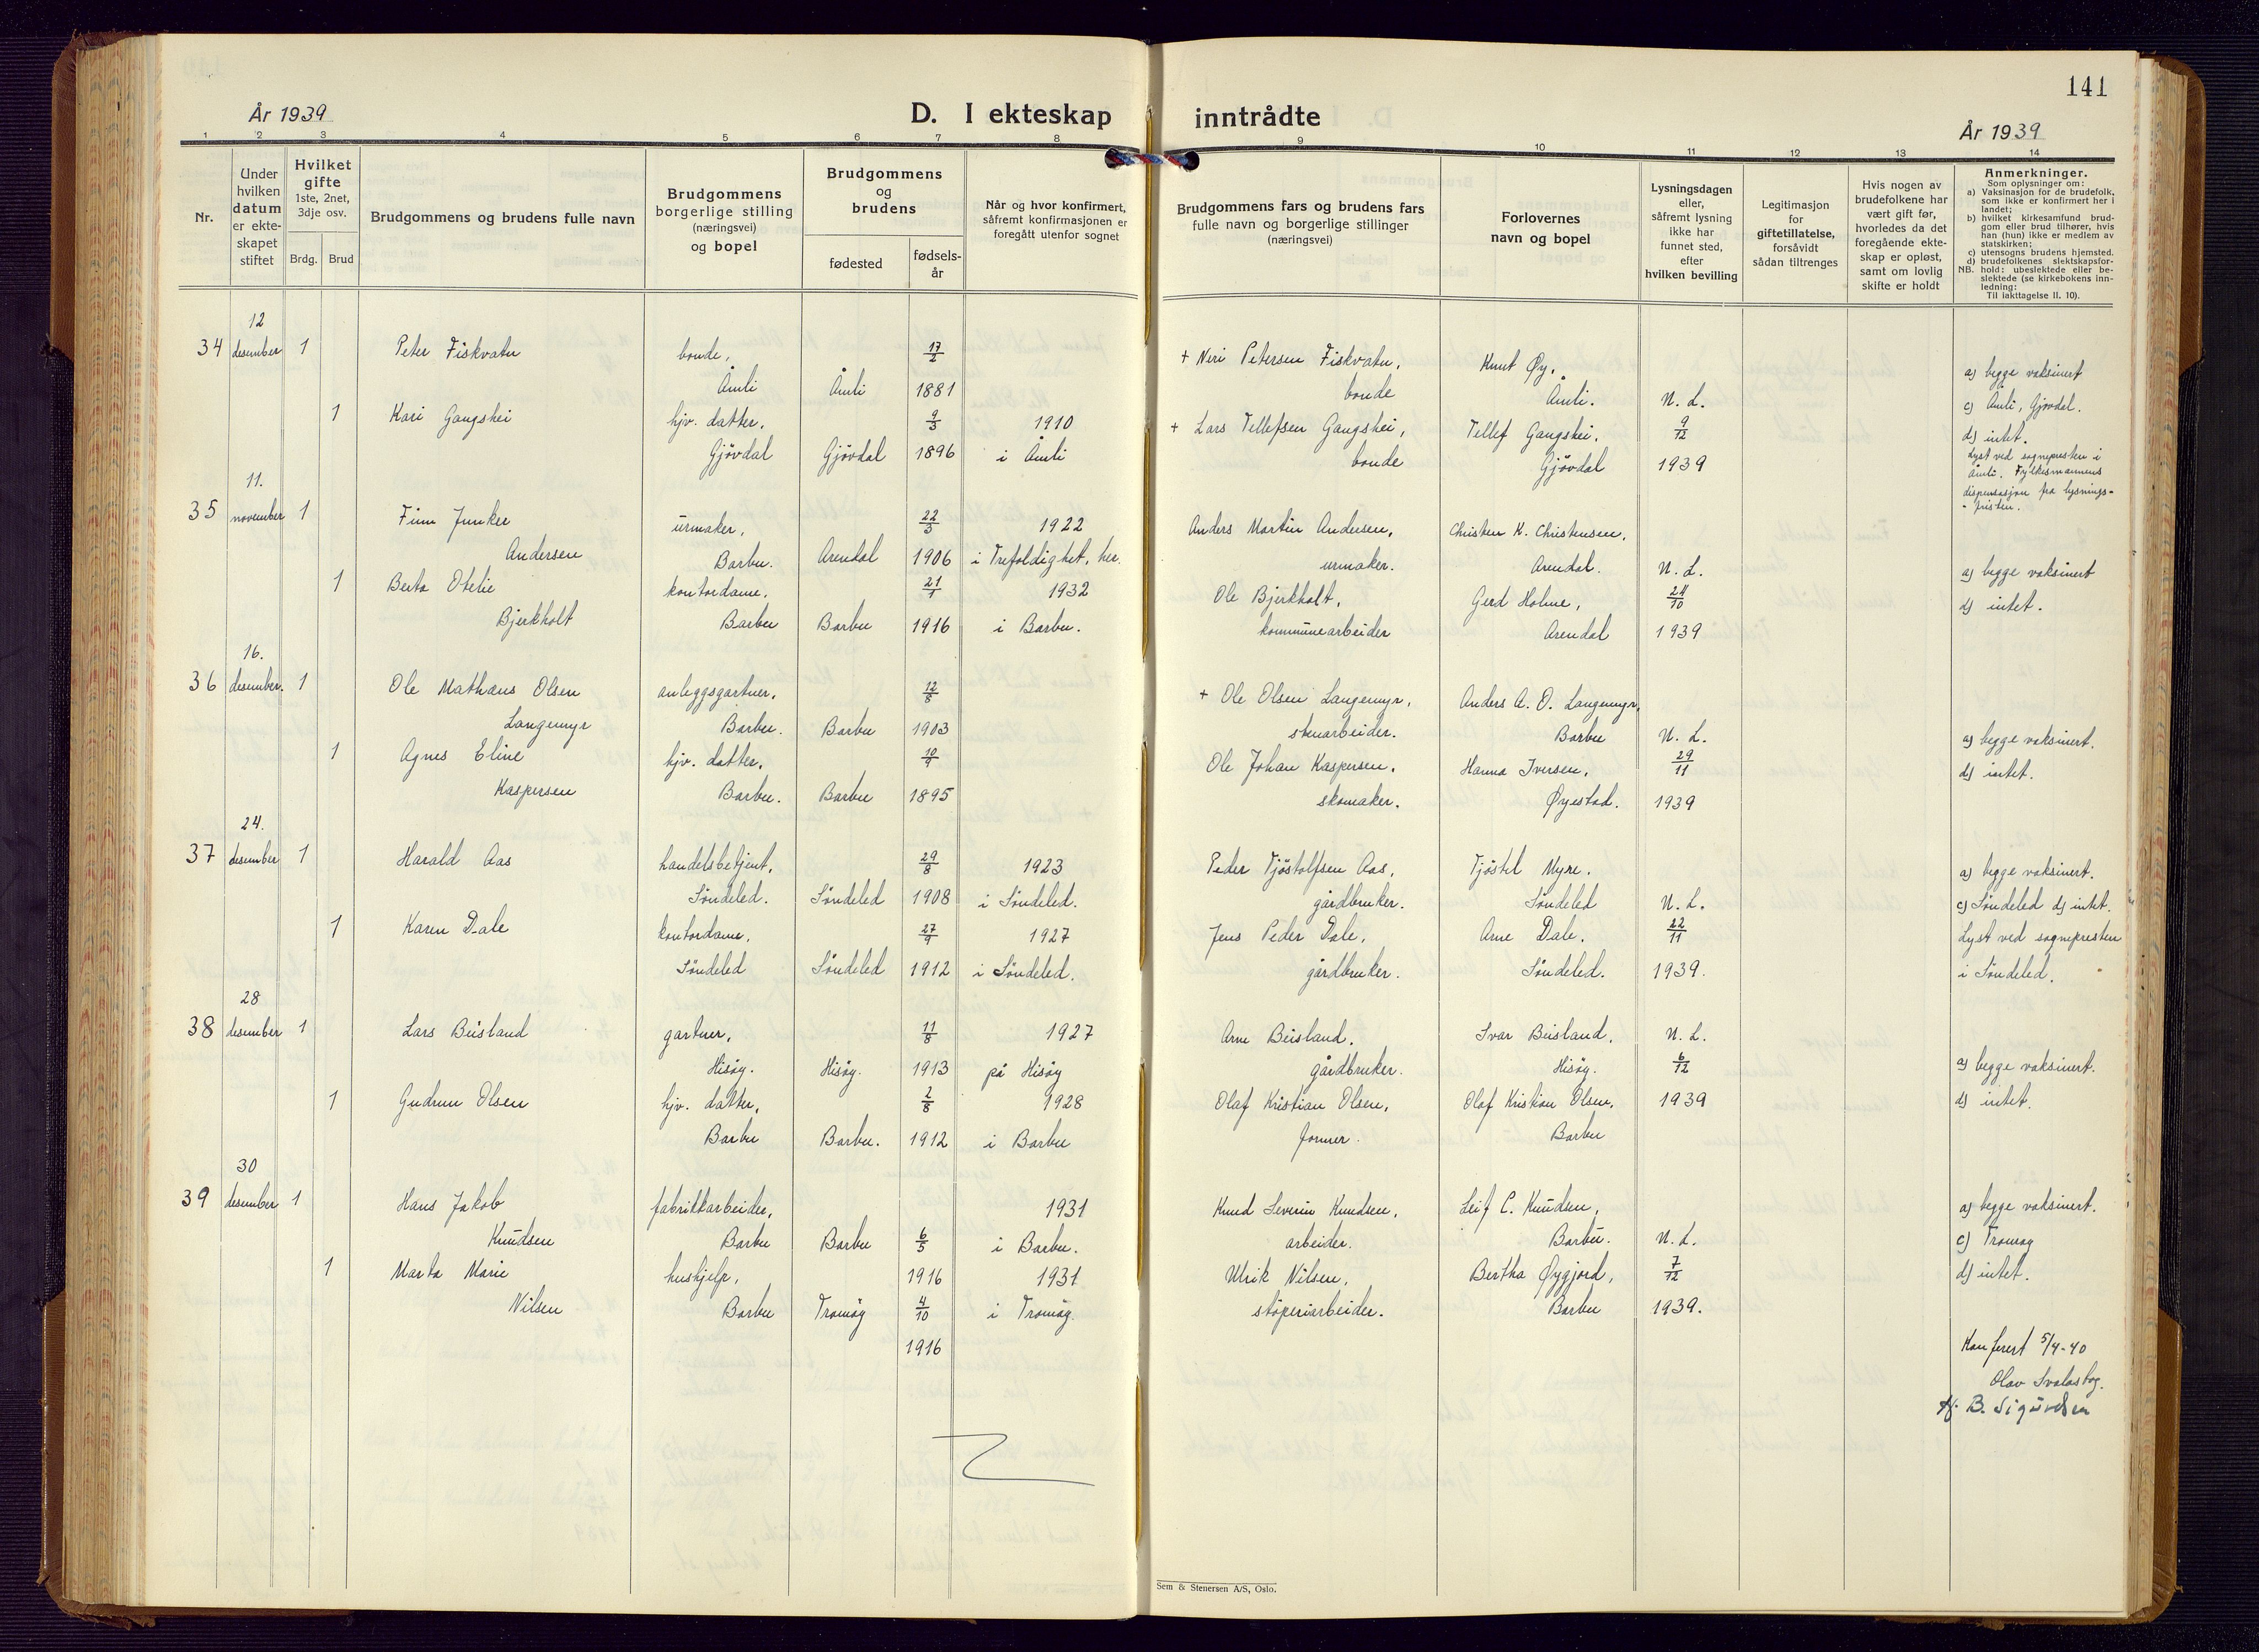 141
År 1939
D. I ekteskap inntrådte
År 1939
1 2 3 4 5 6 7 8 9 10 11 12 13 14
Nr.
Under hvilken datum er ekteskapet stiftet
Hvilket gifte 1ste, 2net, 3dje osv.
Brdg. Brud
Brudgommens og brudens fulle navn
Brudgommens borgerlige stilling (næringsvei) og bopel
Brudgommens og brudens
fødested
fødselsår
Når og hvor konfirmert, såfremt konfirmasjonen er foregått utenfor sognet
Brudgommens fars og brudens fars fulle navn og borgerlige stillinger (næringsvei)
Forlovernes navn og bopel
Lysningsdagen eller, såfremt lysning ikke har funnet sted, efter hvilken bevilling
Legitimasjon for giftetillatelse, forsåvidt sådan tiltrenges
Hvis nogen av brudefolkene har vært gift før, hvorledes da det foregående ekteskap er opløst, samt om lovlig skifte er holdt
Anmerkninger.
Som oplysninger om:
a) Vaksinasjon for de brudefolk, som ikke er konfirmert her i landet;
b) hvilket kirkesamfund brudgom eller brud tilhører, hvis han (hun) ikke er medlem av statskirken;
c) utensogns brudens hjemsted.
d) brudefolkenes slektskapsforhold: ubeslektede eller beslektede (se kirkebokens innledning:
NB.
Til iakttagelse II. 10).
12
34 desember 1 Peter Fiskvatn bonde, 17/2 + Neri Petersen Fiskvatn, Knut Øy,
Åmli Åmli 1881 bonde Åmli. N. L. a) begge vaksinert
1 Kari Gangshei hjv. datter, 9/3 1910 + Lars Tellefsen Gangshei, Tellef Gangshei, 9/12 c) Åmli, Gjøvdal.
Gjövdal Gjövdal 1896 i Åmli bonde Gjövdal 1939 d) intet.
Lyst ved sognepresten i
Åmli. Fylkesmannens
dispensasjon fra lysnings-
- fristen.
11.
35 november 1 Finn Junker urmaker, 22/3 1922 Anders Martin Andersen, Christen K. Christensen,
Andersen Barbu. Arendal 1906 i Trefoldighet, her. urmaker. Arendal. N. L. a) begge vaksinert
1 Berta Otelie kontordame, 21/1 1932 Ole Bjerkholt, Gerd Holme, 24/10 d) intet.
Bjerkholt Barbu Barbu 1916 i Barbu. kommunearbeider Arendal 1939
16.
36 desember. 1 Ole Mathæus Olsen anleggsgartner, 12/8 + Ole Olsen Langemyr, Anders A. O. Langemyr,
Langemyr Barbu. Barbu 1903 stenarbeider. Barbu N. L. a) begge vaksinert.
1 Agnes Eline hjv. datter, 10/9 Ole Johan Kaspersen, Hanna Iversen, 29/11 d) intet.
Kaspersen Barbu. Barbu 1895 skomaker. Øyestad. 1939
24.
37 desember 1 Harald Aas handelsbetjent, 29/8 1923 Peder Tjöstolfsen Aas, Tjöstel Myre. a) begge vaksinert.
Söndeled. Söndeled 1908 i Söndeled. gårdbruker. Söndeled N. L. c) Söndeled d) intet.
1 Karen Dale kontordame, 27/9 1927 Jens Peder Dale, Arne Dale, 22/11 Lyst ved sognepresten
Söndeled Söndeled 1912 i Söndeled. gårdbruker. Söndeled. 1939. i Söndeled.
28
38 desember 1 Lars Beisland gartner, 11/8 1927 Arne Beisland, Ivar Beisland, N. L.
Hisöy. Hisöy. 1913 på Hisöy gårdbruker. Hisöy. 6/12 a) begge vaksinert.
1 Gudrun Olsen hjv. datter, 2/8 1928 Olaf Kristian Olsen, Olaf Kristian Olsen, 1939 d) intet.
Barbu Barbu. 1912 i Barbu former. Barbu
30
39 desember 1 Hans Jakob fabrikkarbeider, 1931 Knud Severin Knudsen, Leif C. Knudsen, a) begge vaksinert.
Knudsen Barbu Barbu 6/5 i Barbu. arbeider. Barbu. N. L. c) Tromöy
1 Marta Marie hushjelp, 1916 1931 Ulrik Nilsen, Bertha Øygjord, 7/12 d) intet.
Nilsen Barbu Tromöy 4/10 i Tromöy. stöperiarbeider. Barbu 1939.
1916
Konferert 5/4-40
Olav Svalastog.
B. Sigurdsen
Sem & Stenersen A/S, Oslo.